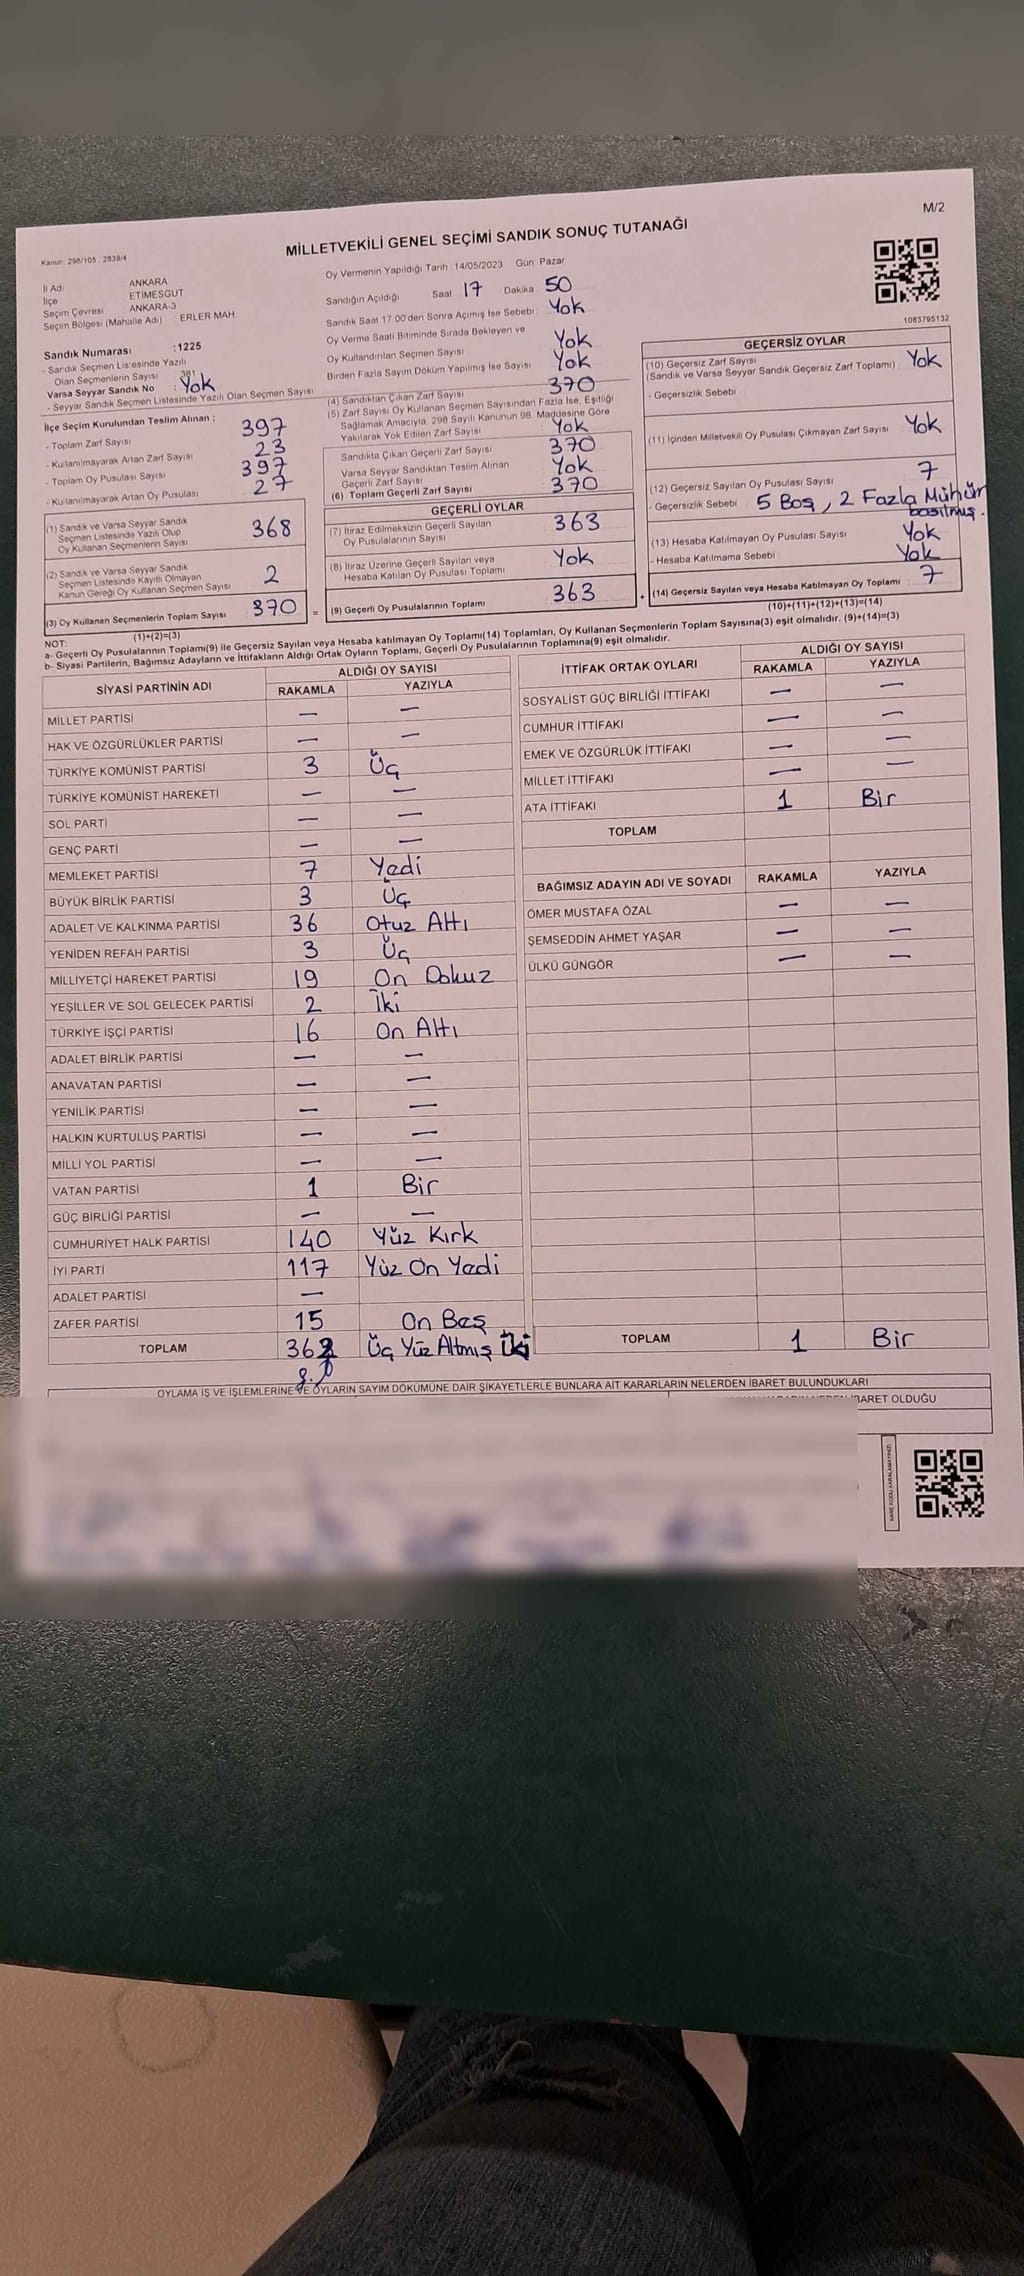 M/2
MİLLETVEKİLİ GENEL SEÇİMİ SANDIK SONUÇ TUTANAĞI
Kanun: 298/105 : 2839/4
İl Adı ANKARA
İlçe ETİMESGUT
Seçim Çevresi ANKARA-3
Seçim Bölgesi (Mahalle Adı) ERLER MAH
Oy Vermenin Yapıldığı Tarih : 14/05/2023 Gün: Pazar
Sandığın Açıldığı Saat 17 Dakika 50
Sandık Saat 17:00'den Sonra Açımış İse Sebebi : Yok
Oy Verme Saati Bitiminde Sırada Bekleyen ve
Oy Kullandırılan Seçmen Sayısı Yok
Birden Fazla Sayım Döküm Yapılmış İse Sayısı Yok
1083795132
Sandık Numarası :1225
- Sandık Seçmen Listesinde Yazılı
Olan Seçmenlerin Sayısı 381
Varsa Seyyar Sandık No : Yok
- Seyyar Sandık Seçmen Listesinde Yazılı Olan Seçmen Sayısı
İlçe Seçim Kurulundan Teslim Alınan ;
- Toplam Zarf Sayısı 397
- Kullanılmayarak Artan Zarf Sayısı 23
- Toplam Oy Pusulası Sayısı 397
- Kullanılmayarak Artan Oy Pusulası 27
(1) Sandık ve Varsa Seyyar Sandık
Seçmen Listesinde Yazılı Olup
Oy Kullanan Seçmenlerin Sayısı 368
(2) Sandık ve Varsa Seyyar Sandık
Seçmen Listesinde Kayıtlı Olmayan
Kanun Gereği Oy Kullanan Seçmen Sayısı 2
(3) Oy Kullanan Seçmenlerin Toplam Sayısı 370 =
(1)+(2)=(3)
(4) Sandıktan Çıkan Zarf Sayısı 370
(5) Zarf Sayısı Oy Kullanan Seçmen Sayısından Fazla İse, Eşitliği
Sağlamak Amacıyla, 298 Sayılı Kanunun 98. Maddesine Göre
Yakılarak Yok Edilen Zarf Sayısı Yok
Sandıkta Çıkan Geçerli Zarf Sayısı 370
Varsa Seyyar Sandıktan Teslim Alınan
Geçerli Zarf Sayısı Yok
(6) Toplam Geçerli Zarf Sayısı 370
GEÇERLİ OYLAR
(7) İtiraz Edilmeksizin Geçerli Sayılan
Oy Pusulalarının Sayısı 363
(8) İtiraz Üzerine Geçerli Sayılan veya
Hesaba Katılan Oy Pusulası Toplamı Yok
(9) Geçerli Oy Pusulalarının Toplamı 363 +
GEÇERSİZ OYLAR
(10) Geçersiz Zarf Sayısı
(Sandık ve Varsa Seyyar Sandık Geçersiz Zarf Toplamı) : Yok
- Geçersizlik Sebebi
(11) İçinden Milletvekili Oy Pusulası Çıkmayan Zarf Sayısı Yok
(12) Geçersiz Sayılan Oy Pusulası Sayısı 7
- Geçersizlik Sebebi 5 Boş, 2 Fazla Mühür
basılmış.
(13) Hesaba Katılmayan Oy Pusulası Sayısı Yok
- Hesaba Katılmama Sebebi : Yok
(14) Geçersiz Sayılan veya Hesaba Katılmayan Oy Toplamı : 7
(10)+(11)+(12)+(13)=(14)
NOT:
a- Geçerli Oy Pusulalarının Toplamı(9) ile Geçersiz Sayılan veya Hesaba katılmayan Oy Toplamı(14) Toplamları, Oy Kullanan Seçmenlerin Toplam Sayısına(3) eşit olmalıdır. (9)+(14)=(3)
b- Siyasi Partilerin, Bağımsız Adayların ve İttifakların Aldığı Ortak Oyların Toplamı, Geçerli Oy Pusulalarının Toplamına(9) eşit olmalıdır.
SİYASİ PARTİNİN ADI ALDIĞI OY SAYISI
RAKAMLA YAZIYLA
MİLLET PARTİSİ — —
HAK VE ÖZGÜRLÜKLER PARTİSİ — —
TÜRKİYE KOMÜNİST PARTİSİ 3 Üç
TÜRKİYE KOMÜNİST HAREKETİ — —
SOL PARTİ — —
GENÇ PARTİ — —
MEMLEKET PARTİSİ 7 Yedi
BÜYÜK BİRLİK PARTİSİ 3 Üç
ADALET VE KALKINMA PARTİSİ 36 Otuz Altı
YENİDEN REFAH PARTİSİ 3 Üç
MİLLİYETÇİ HAREKET PARTİSİ 19 On Dokuz
YEŞİLLER VE SOL GELECEK PARTİSİ 2 İki
TÜRKİYE İŞÇİ PARTİSİ 16 On Altı
ADALET BİRLİK PARTİSİ — —
ANAVATAN PARTİSİ — —
YENİLİK PARTİSİ — —
HALKIN KURTULUŞ PARTİSİ — —
MİLLİ YOL PARTİSİ — —
VATAN PARTİSİ 1 Bir
GÜÇ BİRLİĞİ PARTİSİ — —
CUMHURİYET HALK PARTİSİ 140 Yüz Kırk
İYİ PARTİ 117 Yüz On Yedi
ADALET PARTİSİ —
ZAFER PARTİSİ 15 On Beş
TOPLAM 362 Üç Yüz Altmış İki
İTTİFAK ORTAK OYLARI ALDIĞI OY SAYISI
RAKAMLA YAZIYLA
SOSYALİST GÜÇ BİRLİĞİ İTTİFAKI — —
CUMHUR İTTİFAKI — —
EMEK VE ÖZGÜRLÜK İTTİFAKI — —
MİLLET İTTİFAKI — —
ATA İTTİFAKI 1 Bir
TOPLAM
BAĞIMSIZ ADAYIN ADI VE SOYADI RAKAMLA YAZIYLA
ÖMER MUSTAFA ÖZAL — —
ŞEMSEDDİN AHMET YAŞAR — —
ÜLKÜ GÜNGÖR — —
TOPLAM 1 Bir
OYLAMA İŞ VE İŞLEMLERİNE VE OYLARIN SAYIM DÖKÜMÜNE DAİR ŞİKAYETLERLE BUNLARA AİT KARARLARIN NELERDEN İBARET BULUNDUKLARI
İBARET OLDUĞU
KARE KODU KARALAMAYINIZ!